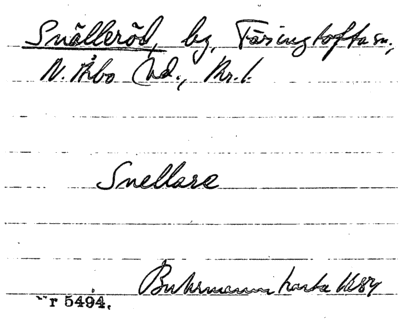 Snälleröd, by, Färingtofta sn.,
N. Åbo hd., Kr. l.
Snellare
Buhrmanns karta 1684
r 5494.